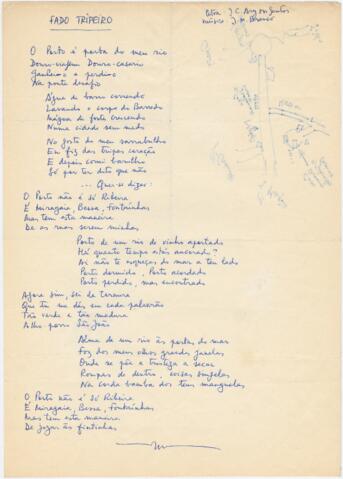 FADO TRIPEIRO
letra: J. C. Ary dos Santos
música: J. M. Branco
O Porto é porta do meu rio
Douro-viagem Douro-casario
Ganhei-o e perdi-o
Na ponte desafio
Água de barro correndo
Lavando o corpo do Barredo
Mágoa de fonte crescendo
Numa cidade sem medo
No gosto do meu sarrabulho
Eu fiz das tripas coração
E depois comi barulho
Só por ter dito que não
... Quer-se dizer:
O Porto não é só Ribeira
É Miragaia, Bessa, Fontainhas
Mas tem esta maneira
De as ruas serem minhas
Porto de um rio de vinho apertado
Há quanto tempo estás ancorado?
Ai não te esqueças do mar a teu lado
Porto dormido, Porto acordado
Porto perdido, mas encontrado
Agora sim, sei de ternura
Que tu me dás em cada palavrão
Tão verde e tão madura
Alho porro São João
Alma de um rio às portas do mar
Foz dos meus olhos grandes janelas
Onde se põe a tristeza a secar
Roupas de dentro, coisas singelas
Na corda bamba dos teus
O Porto não é só Ribeira
É Miragaia, Bessa, Fontainhas
Mas tem esta maneira
De jogar às fintinhas